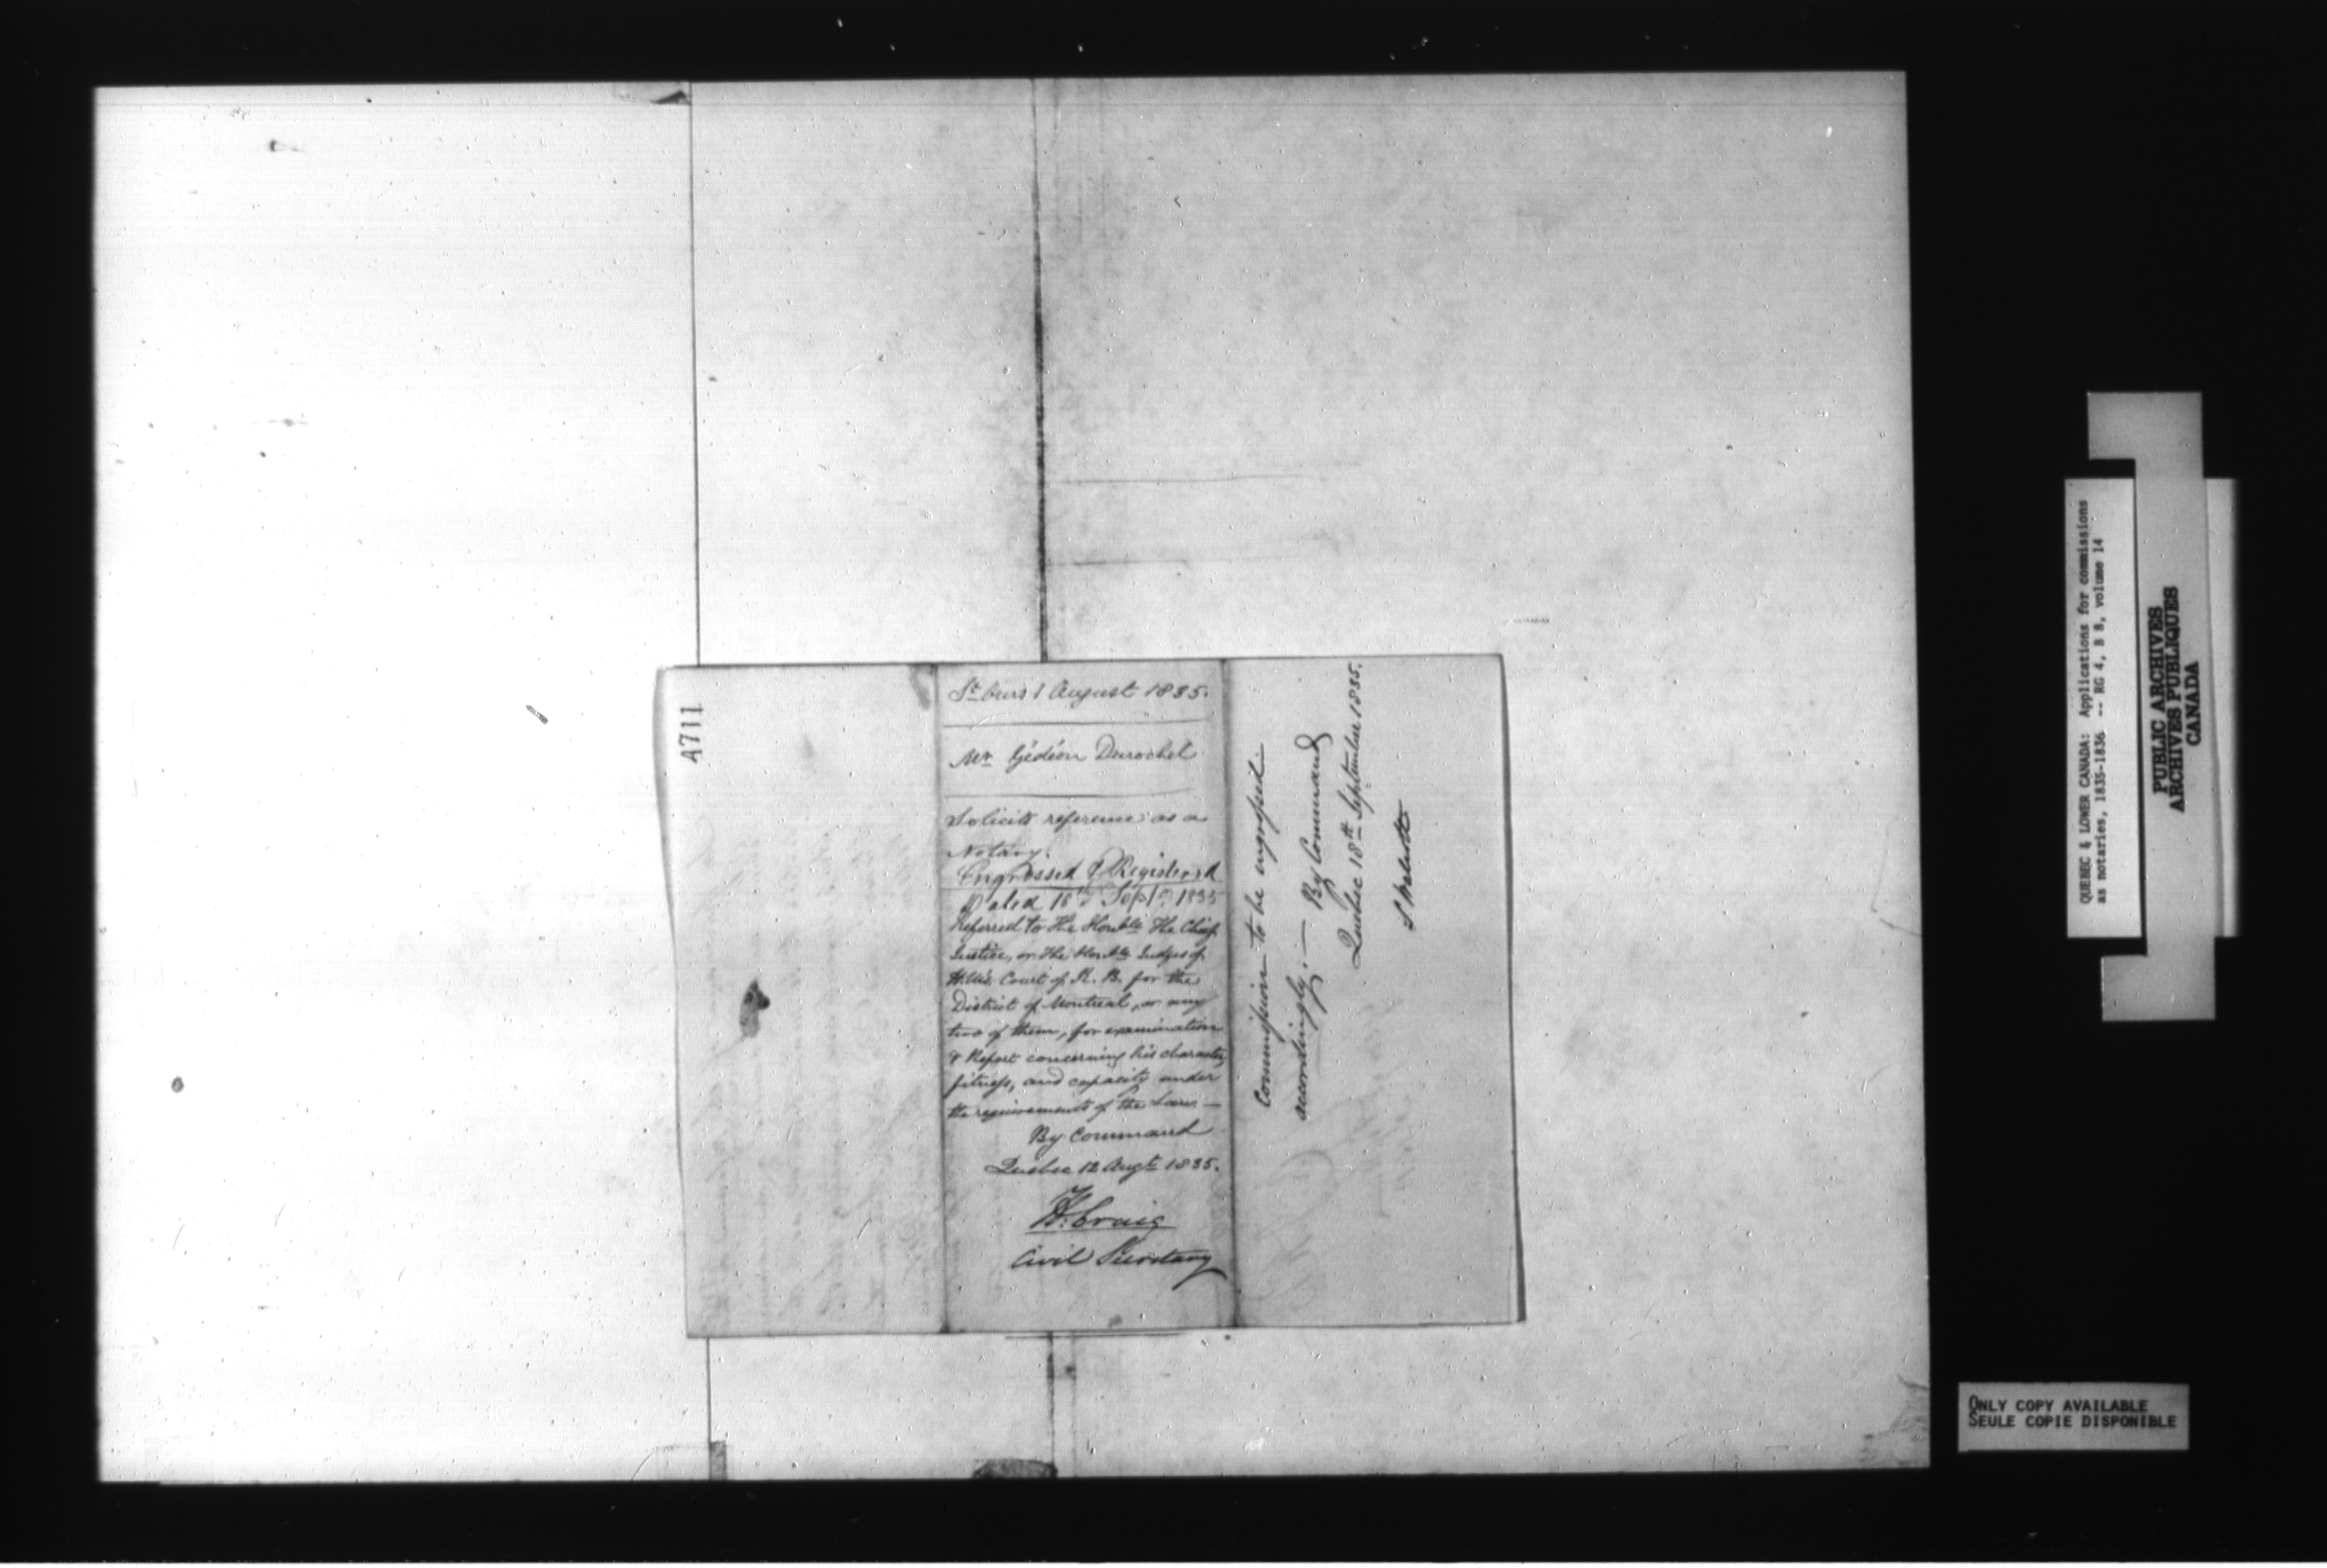 4711
St Ours 1 August 1835.
Mr Gédéon Durochel
Solicits reference as a
Notary.
Engrossed & Registered
Dated 18th Sept. 1835
Referred to the Honble The Chief
Justice, or The Honble Judges of
H.M's. Court of K. B. for the
District of Montreal, or any
two of them, for examination
& Report concerning his character,
fitness, and capacity under
the requirements of the Law. —
By Command
Quebec 12 Augt 1835.
H. Craig
Civil Secretary
Commission to be engrossed
accordingly. — By Command
Quebec 18th September 1835.
S Walcott
QUEBEC & LOWER CANADA: Applications for commissions
as notaries, 1835-1836 -- RG 4, B 8, volume 14
PUBLIC ARCHIVES
ARCHIVES PUBLIQUES
CANADA
ONLY COPY AVAILABLE
SEULE COPIE DISPONIBLE